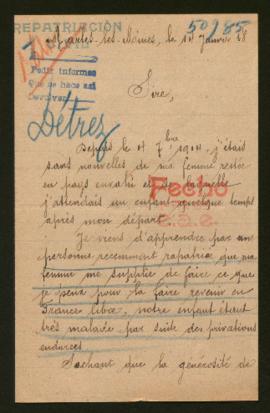 REPATRIACIÓN
50985
Marles-les-Mines, le 14 Janvier
Pedir informes
Que se hace así
Détrez
Sire,
Depuis le 7bre 1914, j'étais
sans nouvelles de ma femme restée
en pays envahi et de laquelle
j'attendais un enfant quelque temps
après mon départ.
Fecho
Je viens d'apprendre par une
personne récemment rapatriée que ma
femme me supplie de faire ce que
je peux pour la faire revenir en
France libre, notre enfant étant
très malade par suite des privations
endurées
Sachant que la générosité de